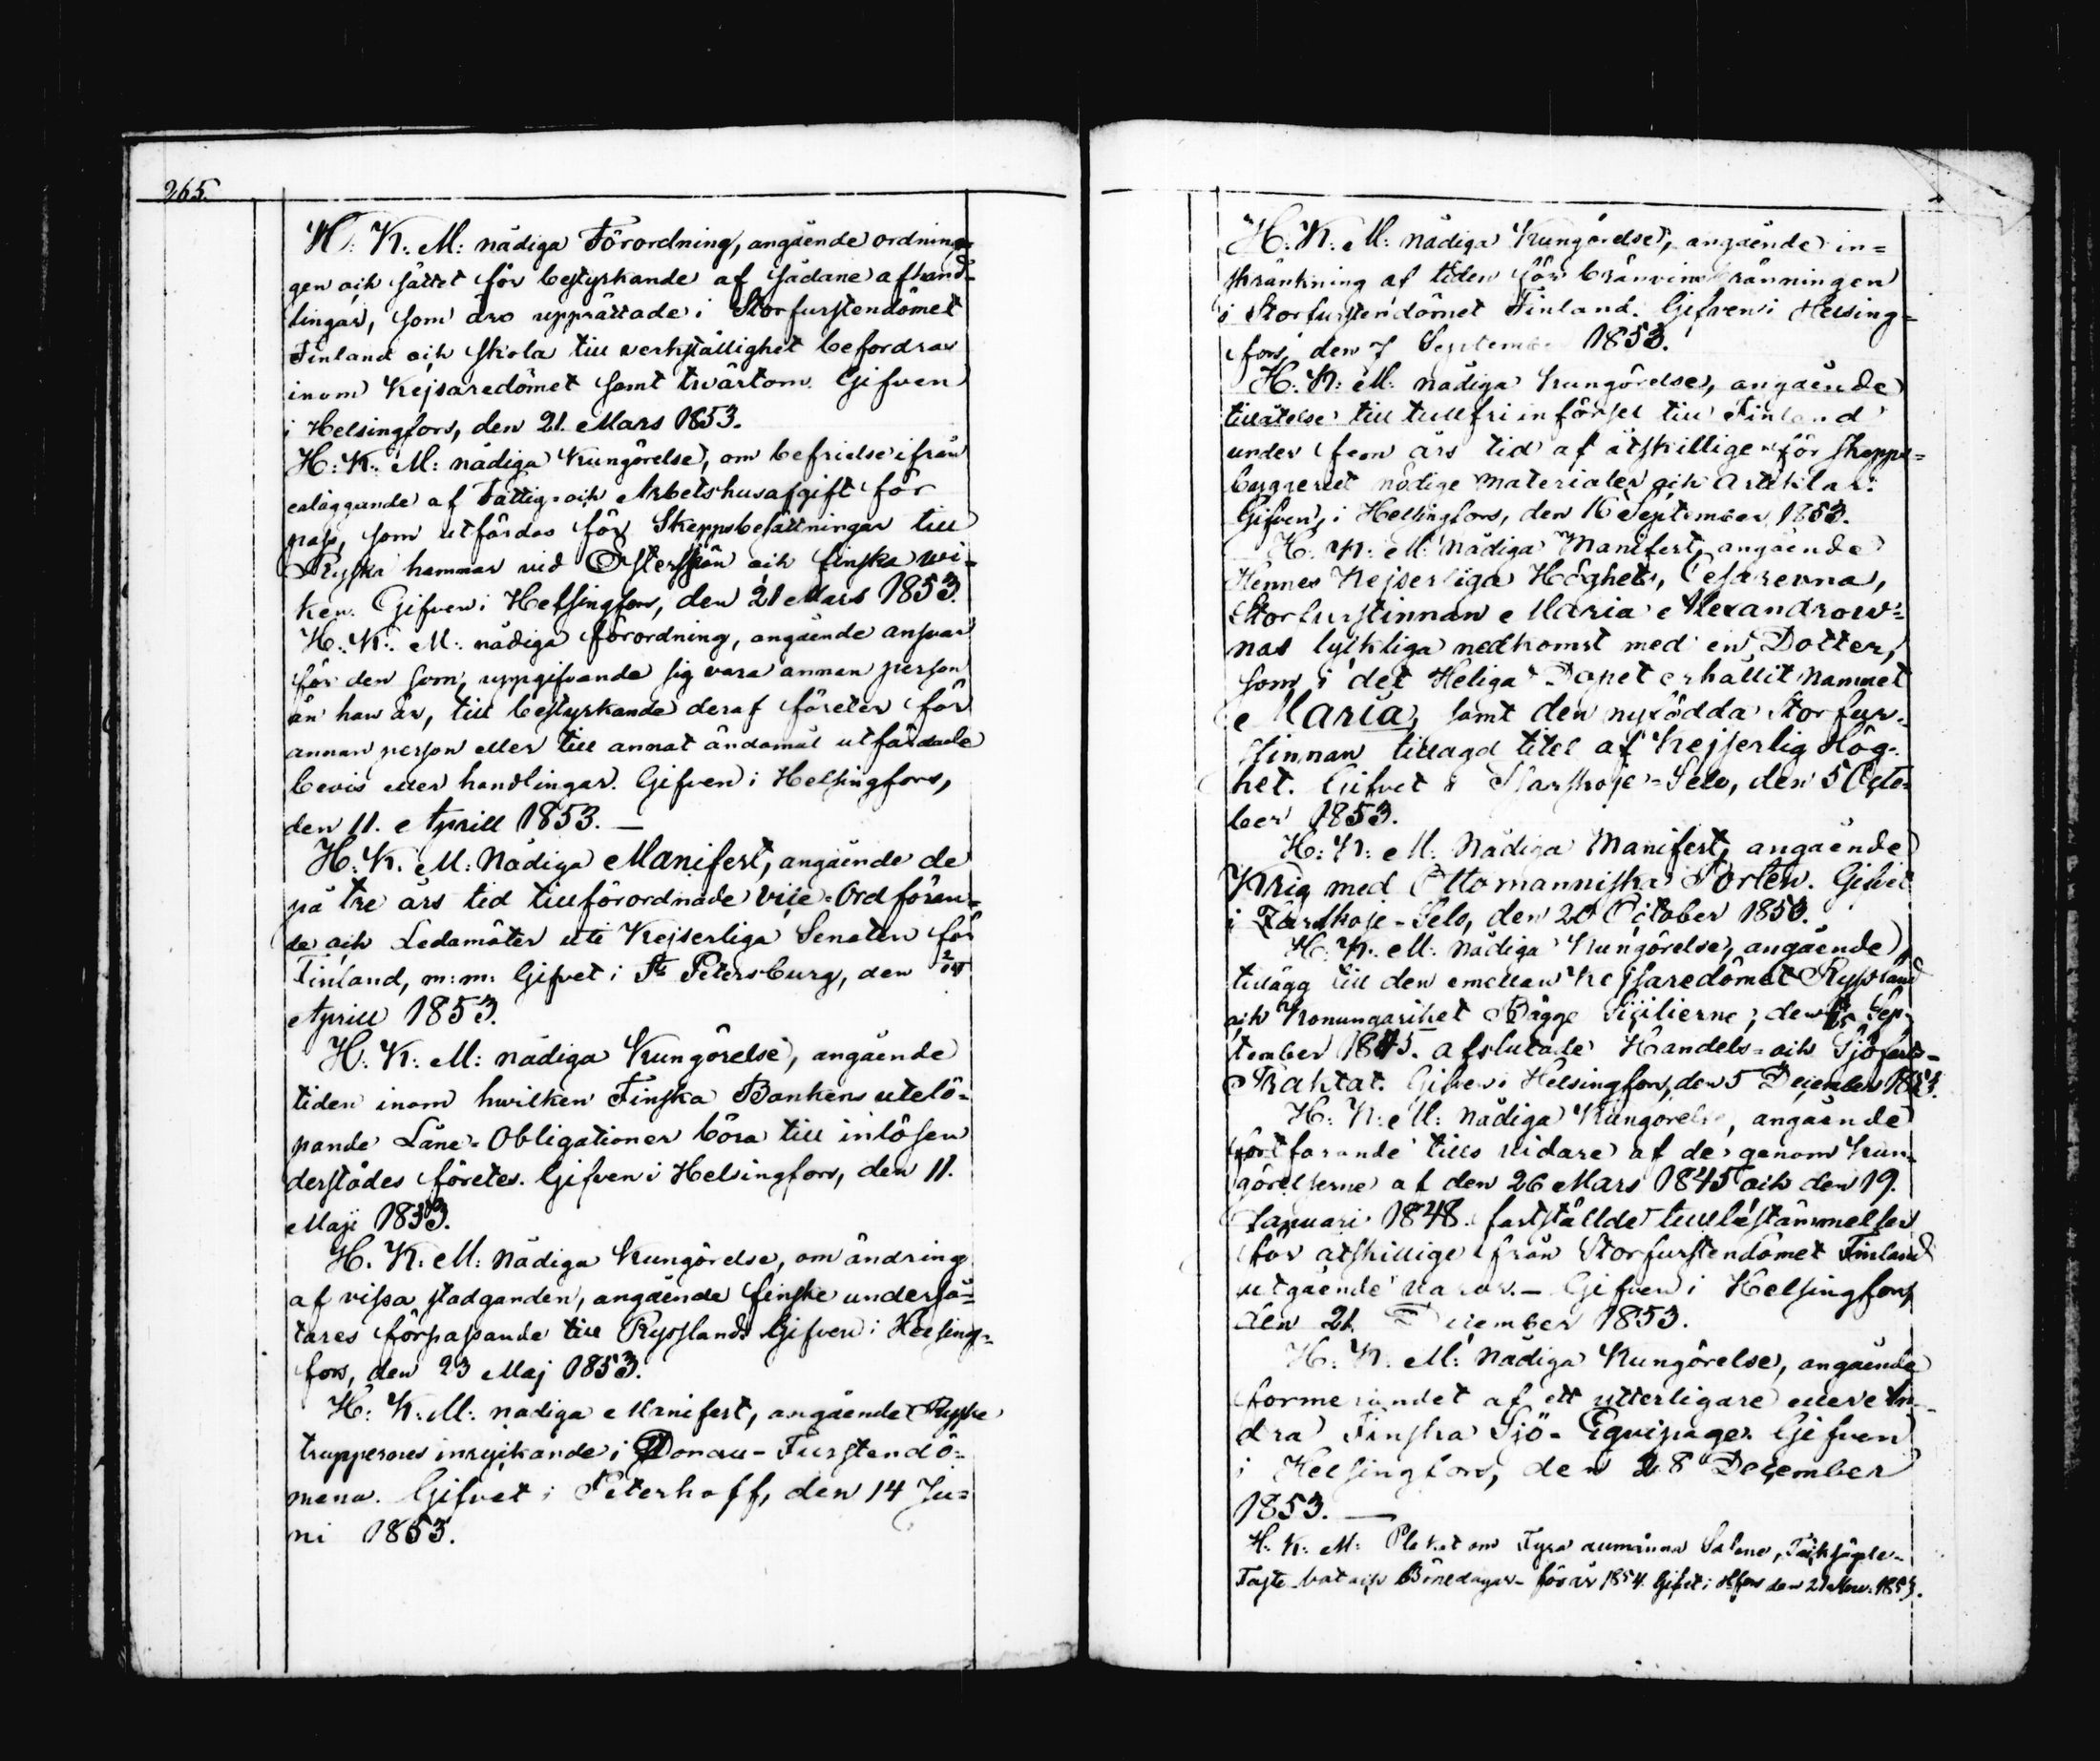 265.
H: K: M: nådiga Förordning, angående ordnin-
gen och sättet för bestyrkande af sådane afhand-
lingar, som äro upprättade i Storfurstendömet
Finland och skola till verkställighet befordras
inom Kejsaredömet samt tvärtom. Gifven
i Helsingfors, den 21. Mars 1853.
H: K: M: nådiga Kungörelse, om befrielse ifrån
erläggande af Fattig- och Arbetshusafgift för
pass, som utfärdas för Skeppsbesättningar till
Ryska hamnar vid Östersjön och finska wi-
ken. Gifven i Helsingfors, den 21 Mars 1853.
H: K: M: nådiga förordning, angående ansvar
för den som, uppgifvande sig vara annan person
än han är, till bestyrkande deraf företer för
annan person eller till annat ändamål utfärdade
bevis eller handlingar. Gifven i Helsingfors,
den 11. Aprill 1853. —
H: K. M: Nådiga Manifest, angående de
på tre års tid tillförordnade Vice-Ordföran-
de och Ledamöter uti Kejserliga Senaten för
Finland, m: m: Gifvet i St Petersburg, den 2/14
Aprill 1853.
H: K: M: nådiga Kungörelse, angående
tiden inom hwilken Finska Bankens utelö-
pande Låne-Obligationer böra till inlösen
derstädes företes. Gifven i Helsingfors, den 11.
Maji 1853.
H. K: M: Nådiga Kungörelse, om ändring
af vissa stadganden, angående finske underså-
tares förpassande till Ryssland. Gifven i Helsing-
fors, den 23 Maj 1853.
H: K: M: nådiga Manifest, angående Ryske
truppernes inryckande i Donau-Furstendö-
mena. Gifvet i Peterhoff, den 14 Ju-
ni 1853.
H: K: M: Nådiga Kungörelse, angående in-
skränkning af tiden för bränvinsbränningen
i Storfurstendömet Finland. Gifven i Helsing-
fors, den 7 September 1853.
H: K: M: nådiga Kungörelse, angående
tillåtelse till tullfri införsel till Finland
under fem års tid af åtskillige för skepps-
byggeriet nödige materialer och Artiklar.
Gifven, i Helsingfors, den 16 September 1853.
H: K: M: Nådiga Manifest, angående
Hennes Kejserliga Höghet, Cesarevna,
Storfurstinnan Maria Alexandrow-
nas lyckliga nedkomst med en Dotter,
som i det Heliga Dopet erhållit namnet
Maria, samt den nyfödda Storfur-
stinnan tillagd titel af Kejserlig Hög-
het. Gifvet i Tsarskoje-Selo, den 5 Octo-
ber 1853.
H: K: M: Nådiga Manifest, angående
Krig med Ottomanniska Porten. Gifvet
i Zarskoje-Selo, den 20 October 1853.
H: K: M: Nådiga Kungörelse, angående
tillägg till den emellan Kejsaredömet Ryssland
och Konungariket Bägge Sicilierne, den Sep-
tember 1845. afslutade Handels- och Sjöfarts-
Traktat. Gifven i Helsingfors, den 5 December 1853.
H: K: M: Nådiga Kungörelse, angående
fortfarande tills vidare af de genom Kun-
görelserne af den 26 Mars 1845 och den 19.
Januari 1848. fastställde tullbestämmelser
för åtskillige från Storfurstendömet Finland
utgående varor. — Gifven i Helsingfors,
den 21. December 1853.
H: K: M: Nådiga Kungörelse, angående
formerandet af ett ytterligare eller An-
dra Finska Sjö-Equipage. Gifven
i Helsingfors, den 28 December
1853. —
H: K: M: Plakat om Fyra allmänna Solenne, Tacksägelse-
Faste- bot och Bönedagar för år 1854. Gifvet i Hfors den 21 Nov. 1853.